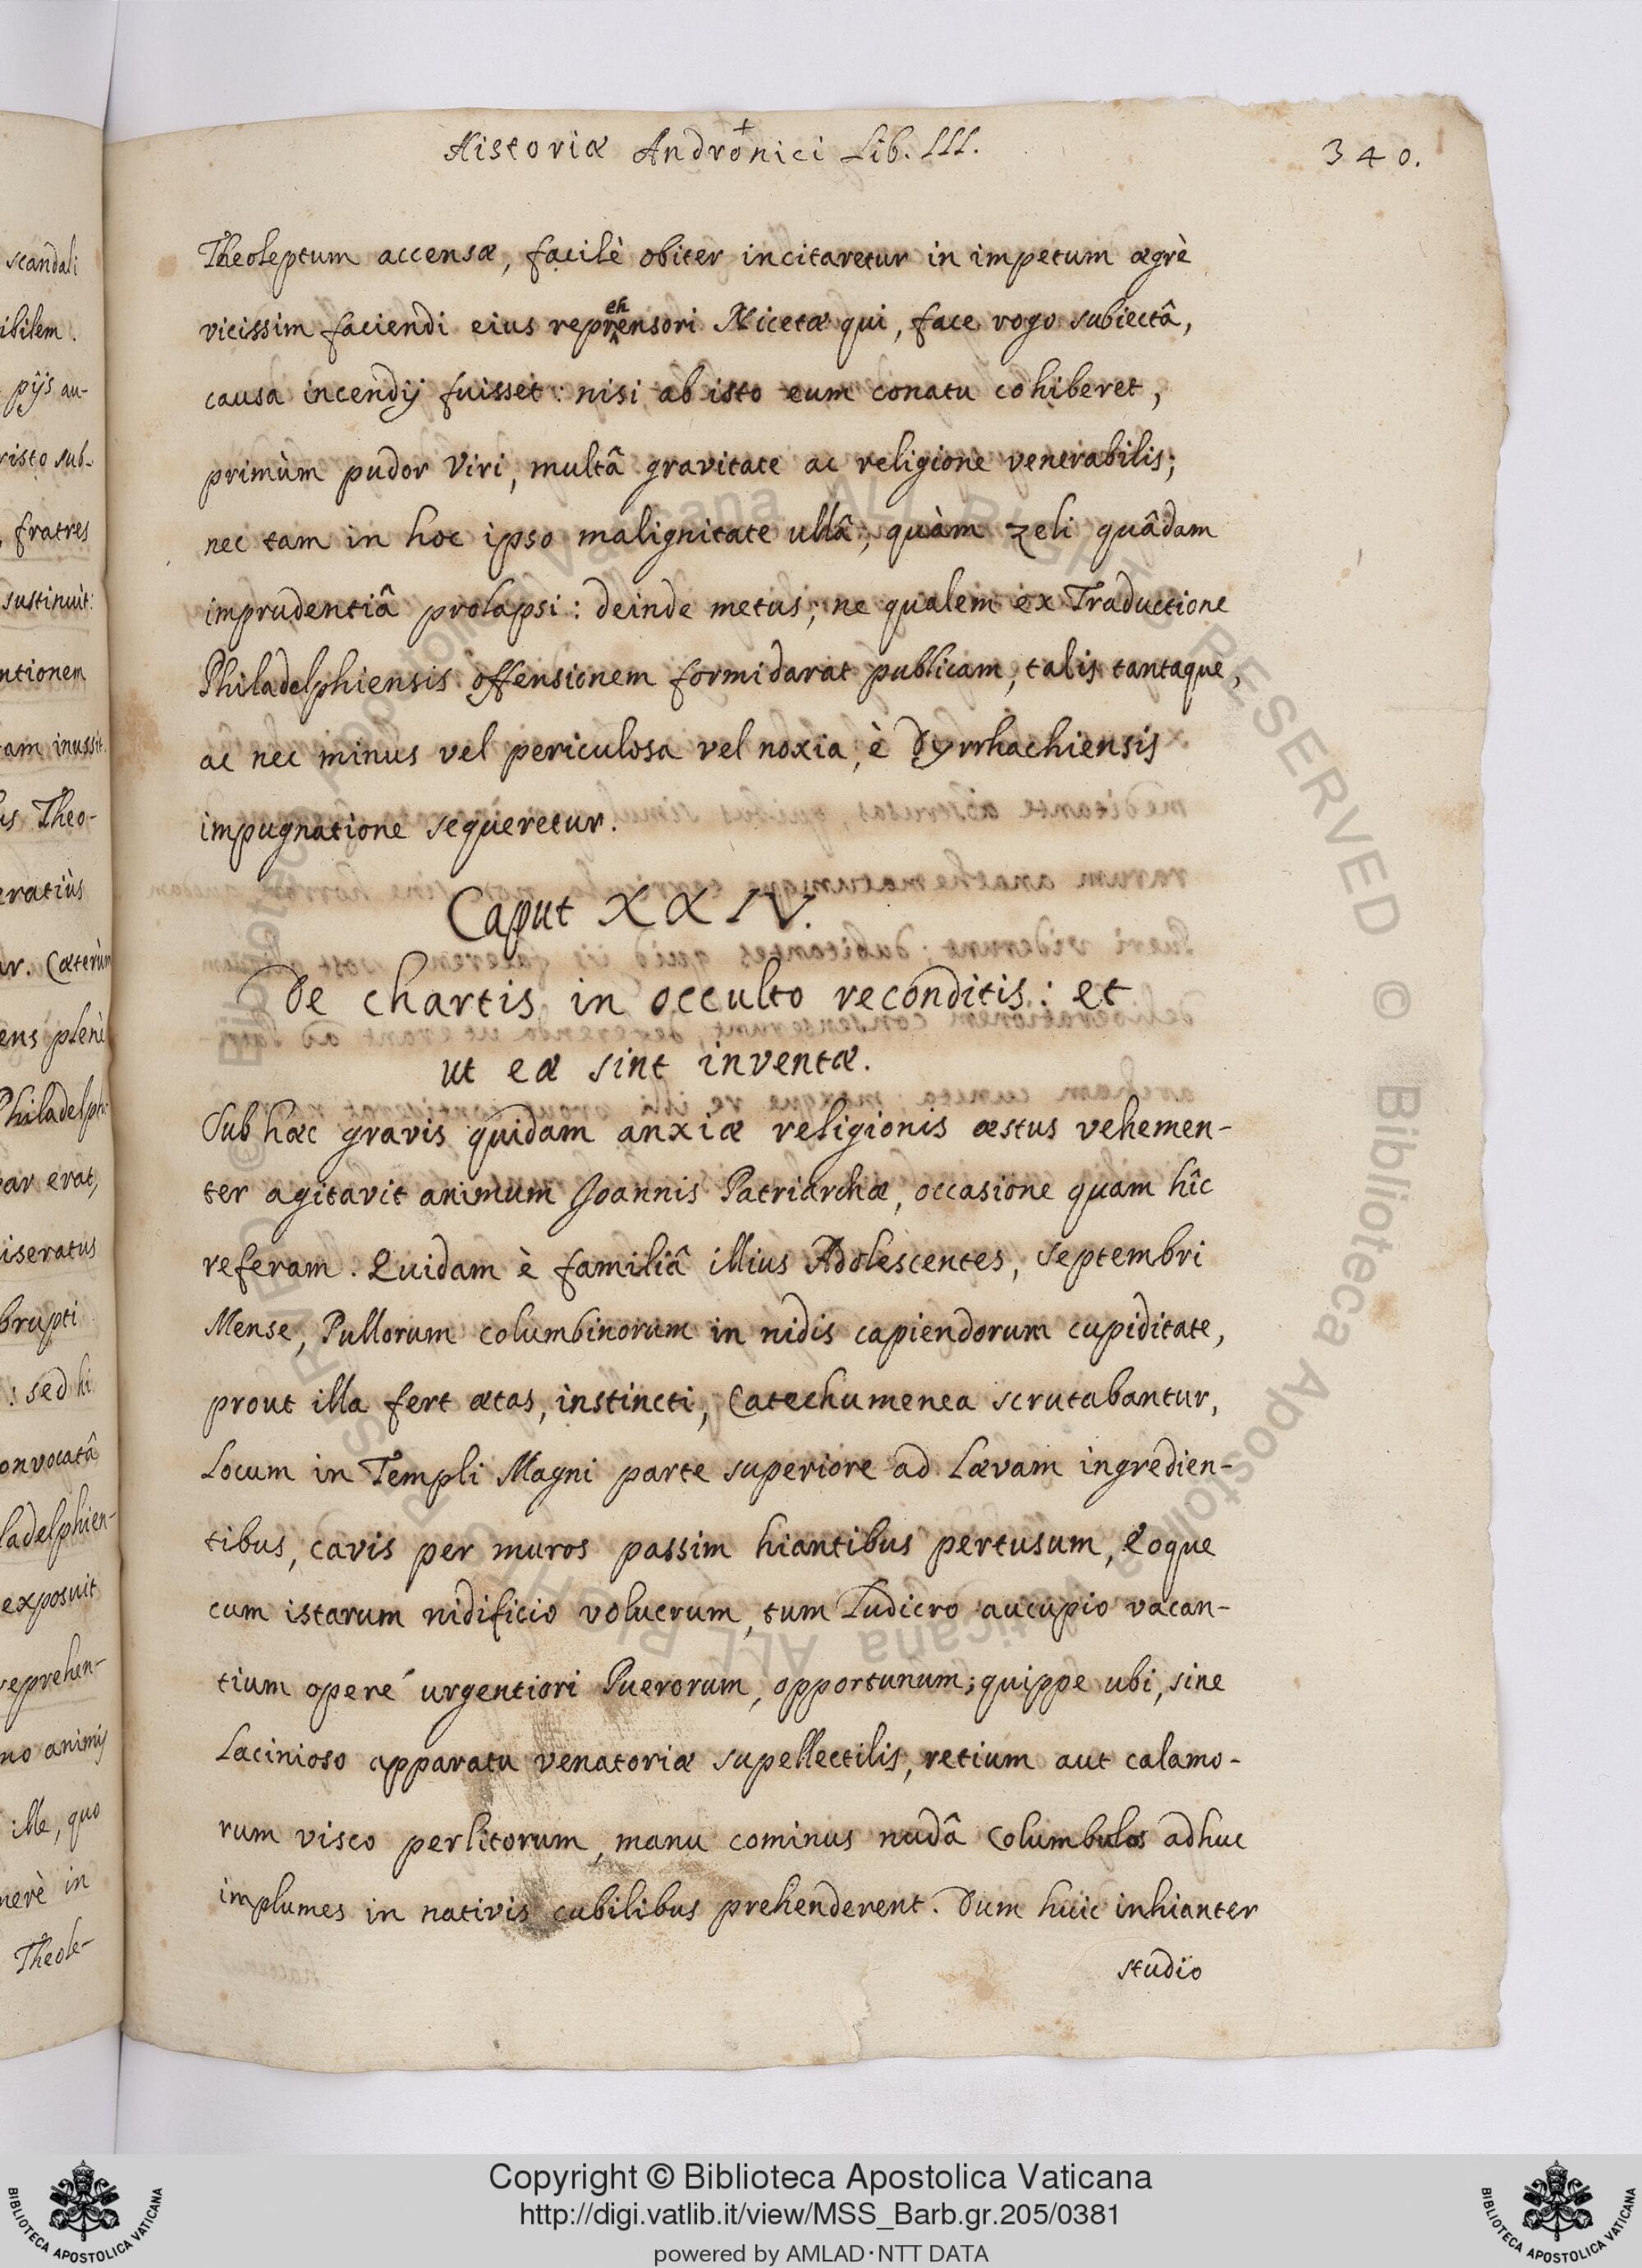 Historiæ Andronici Lib. III.
340.
Theoleptum accensæ, facilè obiter incitaretur in impetum ægrè
vicissim faciendi eius reprehensori Nicetæ qui, face rogo subiectâ,
causa incendij fuisset: nisi ab isto eum conatu cohiberet,
primùm pudor Viri, multâ gravitate ac religione venerabilis;
nec tam in hoc ipso malignitate ullâ, quàm zeli quâdam
imprudentiâ prolapsi: deinde metus, ne qualem ex Traductione
Philadelphiensis offensionem formidarat publicam, talis tantaque,
ac nec minus vel periculosa vel noxia, è Dyrrhachiensis
impugnatione sequeretur.
Caput XXIV.
De chartis in occulto reconditis: et
ut eæ sint inventæ.
Sub hæc gravis quidam anxiæ religionis æstus vehemen-
ter agitavit animum Joannis Patriarchæ, occasione quam hîc
referam. Quidam è familiâ illius Adolescentes, Septembri
Mense, Pullorum columbinorum in nidis capiendorum cupiditate,
prout illa fert ætas, instincti, Catechumenea scrutabantur,
Locum in Templi Magni parte superiore ad Lævam ingredien-
tibus, cavis per muros passim hiantibus pertusum, Eoque
cum istarum nidificio volucrum, tum Ludicro aucupio vacan-
tium operé urgentiori Puerorum, opportunum; quippe ubi, sine
Lacinioso apparatu venatoriæ supellectilis, retium aut calamo-
rum visco perlitorum, manu cominus nudâ Columbulos adhuc
implumes in nativis cubilibus prehenderent. Dum huic inhianter
studio
scandali
ibilem.
pijs au-
risto sub-
fratres
sustinuit:
ntionem
tam inussit.
us Theo-
eratiùs
ur. Cæterùm
ens plenè
Philadelphi-
par erat,
iseratus
brupti
: sed hi
onvocatâ
ladelphien-
exposuit
reprehen-
no animis
ille, quo
nerè in
Theole-
Biblioteca Apostolica Vaticana ALL RIGHTS RESERVED © Biblioteca Apostolica Vaticana ALL RIGHTS RESERVED ©
Copyright © Biblioteca Apostolica Vaticana
http://digi.vatlib.it/view/MSS_Barb.gr.205/0381
powered by AMLAD·NTT DATA
BIBLIOTECA APOSTOLICA VATICANA
BIBLIOTECA APOSTOLICA VATICANA